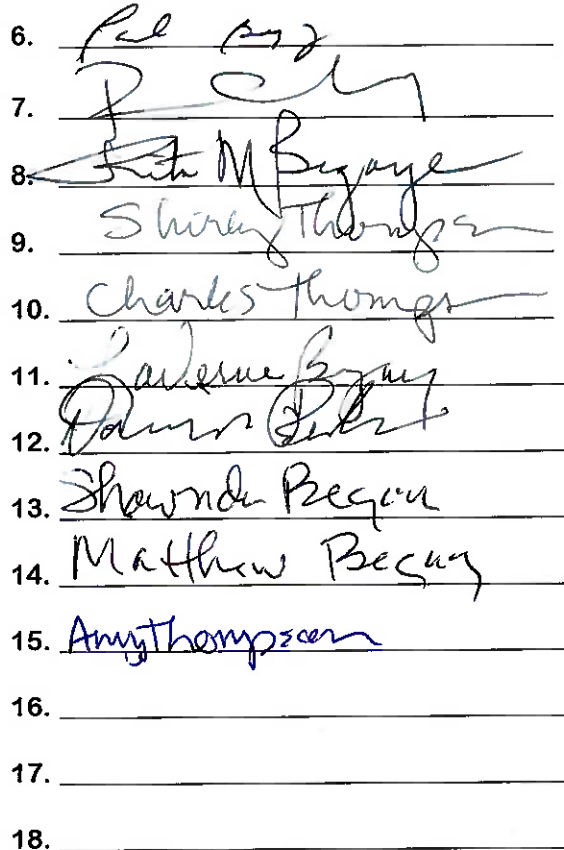 6. Paul
7.
8. Rita M Begaye
9. Shirley Thompson
10. Charles Thompson
11. LaVerne Begay
12.
13. Shawnda Begay
14. Matthew Begay
15. Amy Thompson
16.
17.
18.